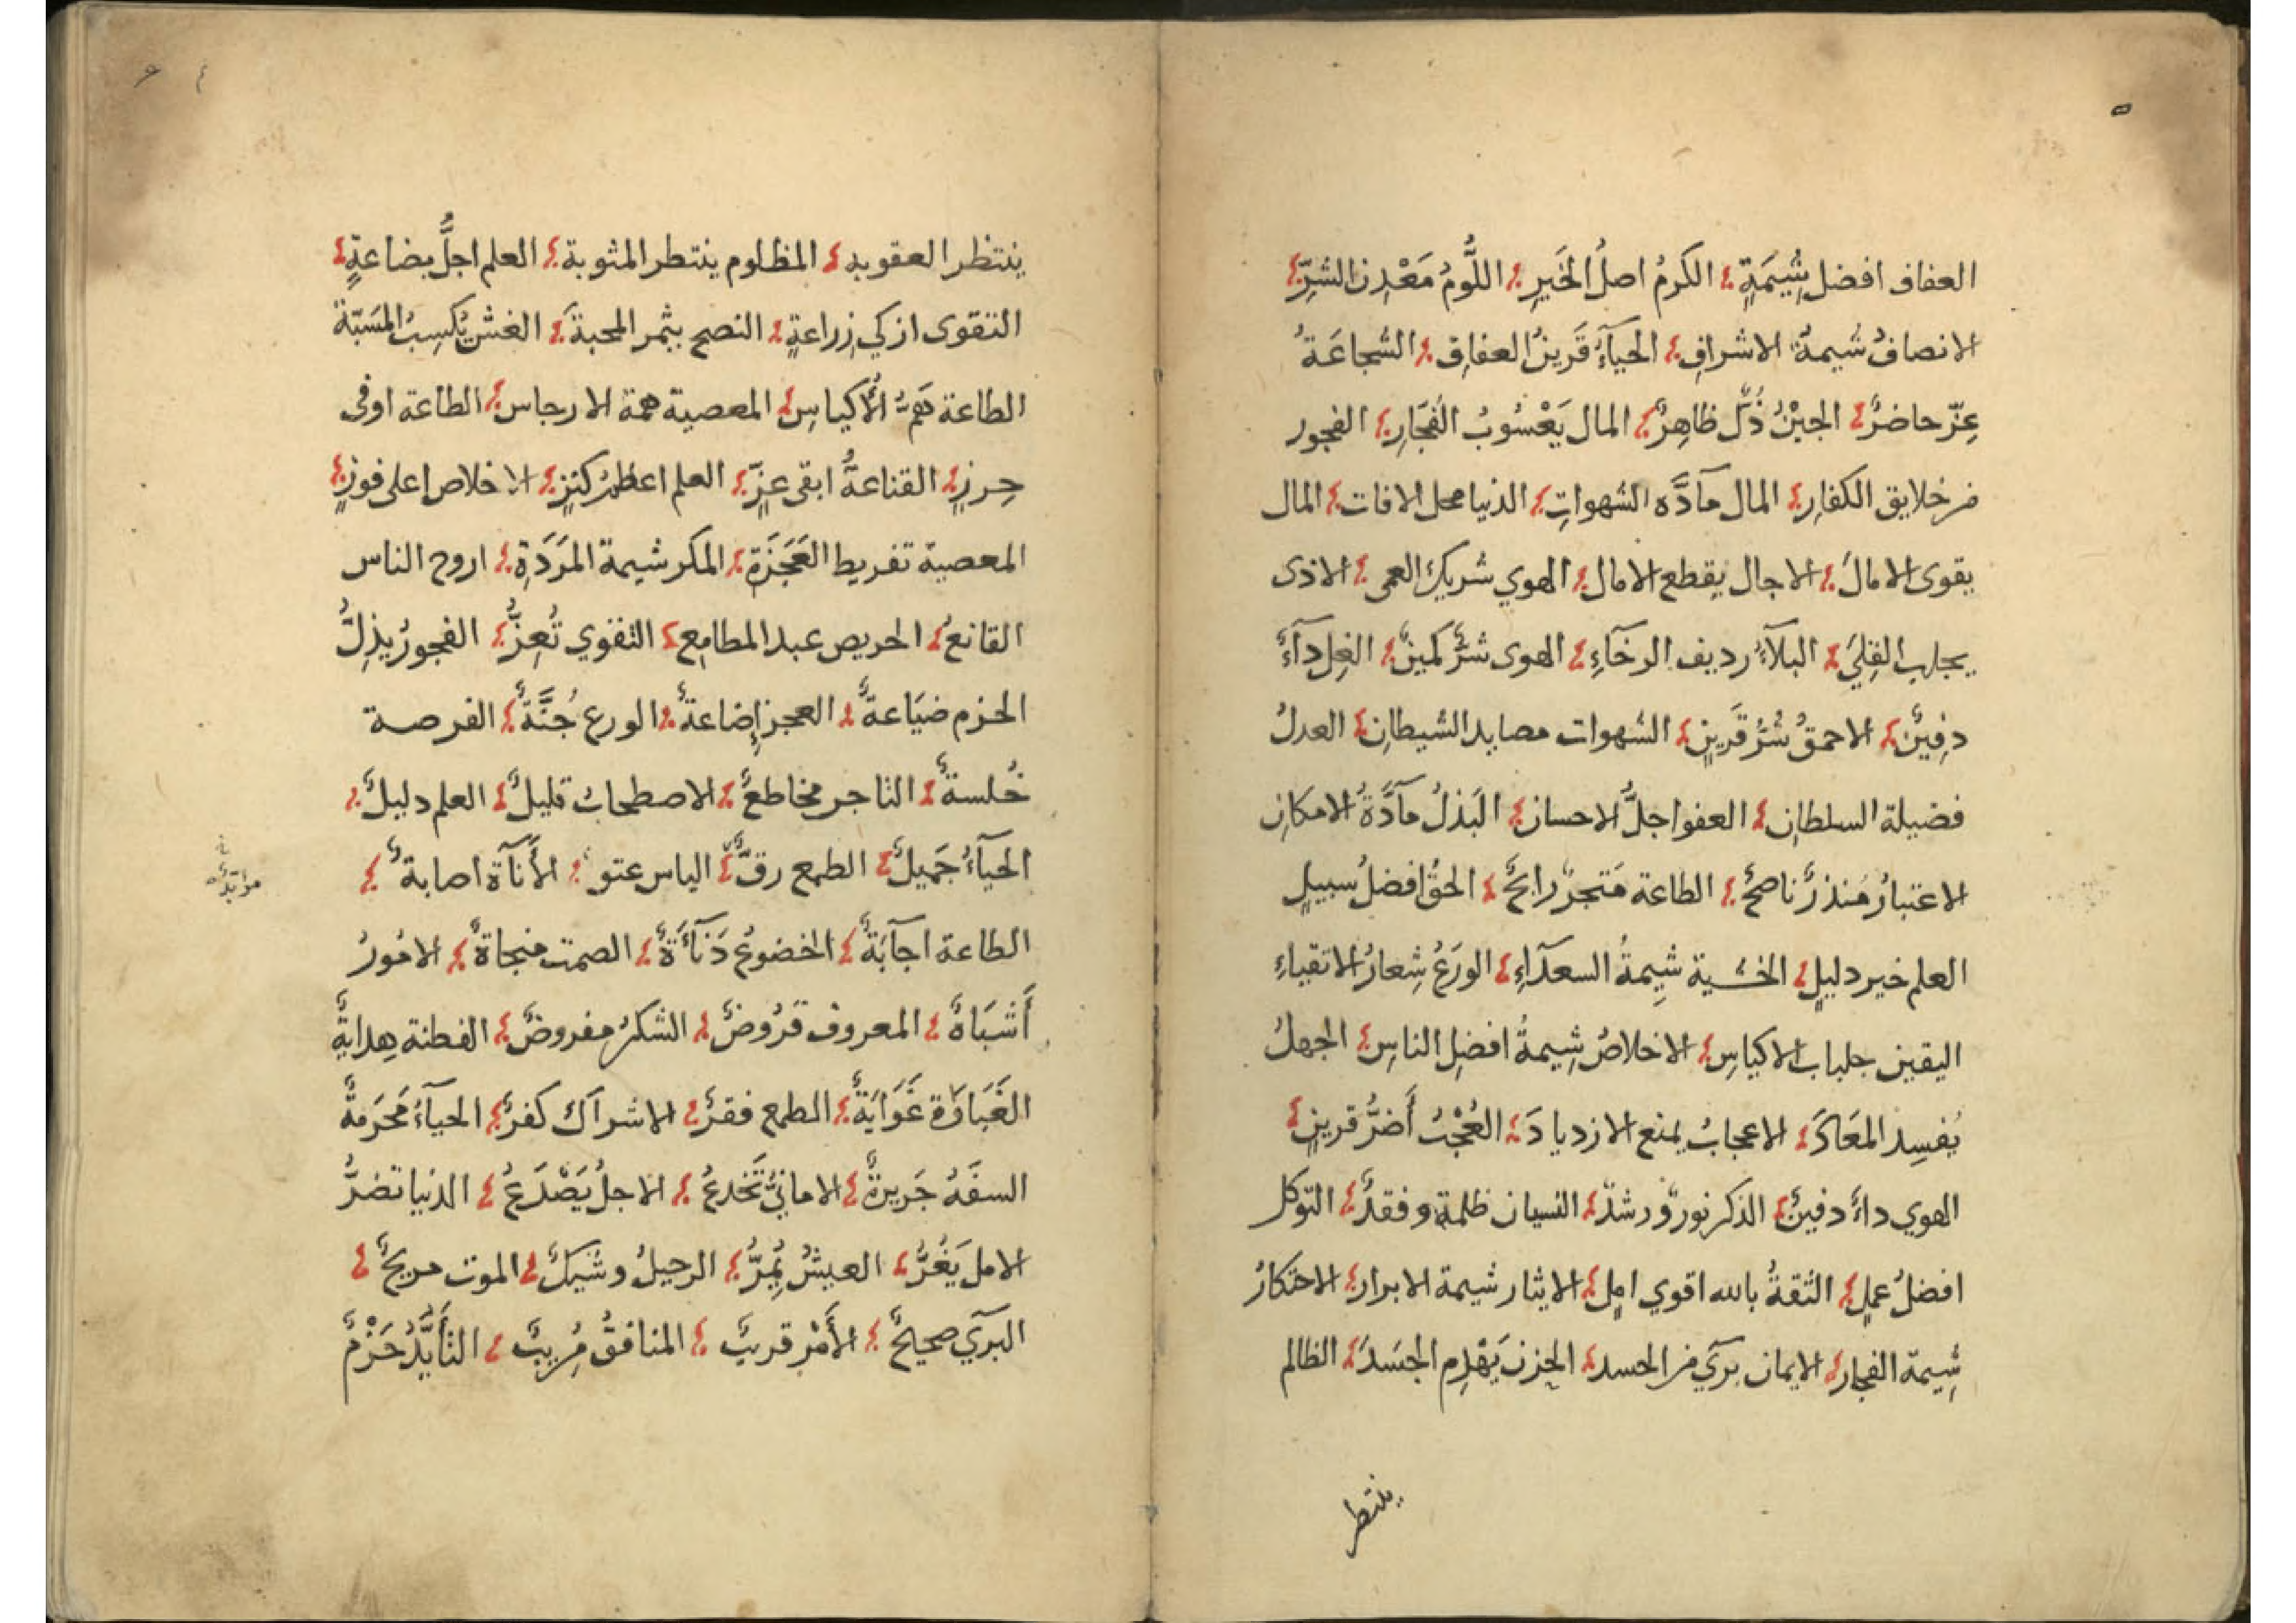 ٥
العفاف افضل شِيمَةٍ الكرمُ اصلُ الخَيرِ اللُّومُ مَعْدِن الشَرِّ
الانصافُ شيمةُ الاشرافِ الحيآءُ قَرينُ العفافِ الشجاعَةُ
عِزّ حاضرٌ الجبْنُ ذُلّ ظاهِرٌ المال يَعْسُوبُ الفُجَارِ الفجور
من خلايق الكفارِ المال مآدَّه الشهواتِ الدنيا محل الافات المال
يقوى الامالَ الاجال يقطع الامال الهوي شريك العمى الاذى
يجلب القِلَي البلآءُ رديف الرخآءِ الهوى شرٌّ كمينٌ الغِل دآءٌ
دفِينٌ الاحمقُ شرُّ قَرينٍ الشهوات مصايد الشيطانِ العدلُ
فضيلة السلطانِ العفو اجلُّ الاحسان البَذلُ مآدَّةُ الامكانِ
الاعتبارُ مُنذرٌ ناصحٌ الطاعة مَتجرٌ رابحٌ الحقُّ افضلُ سبيلٍ
العلم خير دليلٍ الخشية شِيمةُ السعدَآءِ الورَعُ شِعارُ الاتقياءِ
اليقين جلباب الاكياسِ الاخلاصُ شِيمةُ افضِل الناسِ الجهلُ
يُفسِد المعَادَ الاعجابُ يمنع الازديادَ العُجْبُ أَضرُّ قرينٍ
الهوي داءٌ دفينٌ الذكر نورٌ ورشدٌ النسيان ظلمة وفقدٌ التوكل
افضلُ عملٍ الثقةُ بالله اقوي املٍ الايثار شيمة الابرار الاحتكارُ
شِيمة الفجار الايمان بريٓ من الحسد الحزن يَهْدِم الجَسَدَ الظالم
ينتظر
ينتظر العقوبه المظلوم ينتطر المثوبة العلم اجلُّ بضاعةٍ
التقوى ازكي زراعةٍ النصح يثمر المحبة الغش يُكسِبُ المسَبّة
الطاعة هَمُّ الأكياسِ المعصية همة الارجاس الطاعة اوفى
حِرزٍ القناعةُ ابقى عزٍّ العلم اعظمُ كنزٍ الاخلاص اعلى فوزٍ
المعصية تفريط العَجَزَةِ المكر شيمة المَرَدَةِ اروح الناس
القانعُ الحريص عبد المطامِع التقوي تُعِزُّ الفجورُ يذِلُّ
الحزم ضيَاعةٌ العجز إضاعةٌ الورع جُنَّةٌ الفرصة
خُلسةٌ التاجر مخاطعٌ الاصطحابُ قليلٌ العلم دليلٌ
الحيآءُ جَميلٌ الطمع رقٌّ الياس عتو الأَنآة اصابةٌ
الطاعة اجآبَةٌ الخضوعُ دَنآءَةٌ الصمت منجاةٌ الامُورُ
أَشبَاهٌ المعروف قرُوضٌ الشكرُ مفروضٌ الفطنة هِدايةٌ
الغَبَاوَة غَوَايَةٌ الطمع فقرٌ الاشرآك كفرٌ الحيآءُ مَحرَمةٌ
السفَهُ جَريرةٌ الامانيُّ تَخدعُ الاجلُ يَصْدَعُ الدنيا تضرُّ
الامل يَغُرُّ العيشُ يمُرُّ الرحيلُ وشيكٌ الموت مريحٌ
البريٓ صحيحٌ الأَمْر قريبٌ المنافقُ مُريبٌ التأيُّدُ حَزْمٌ